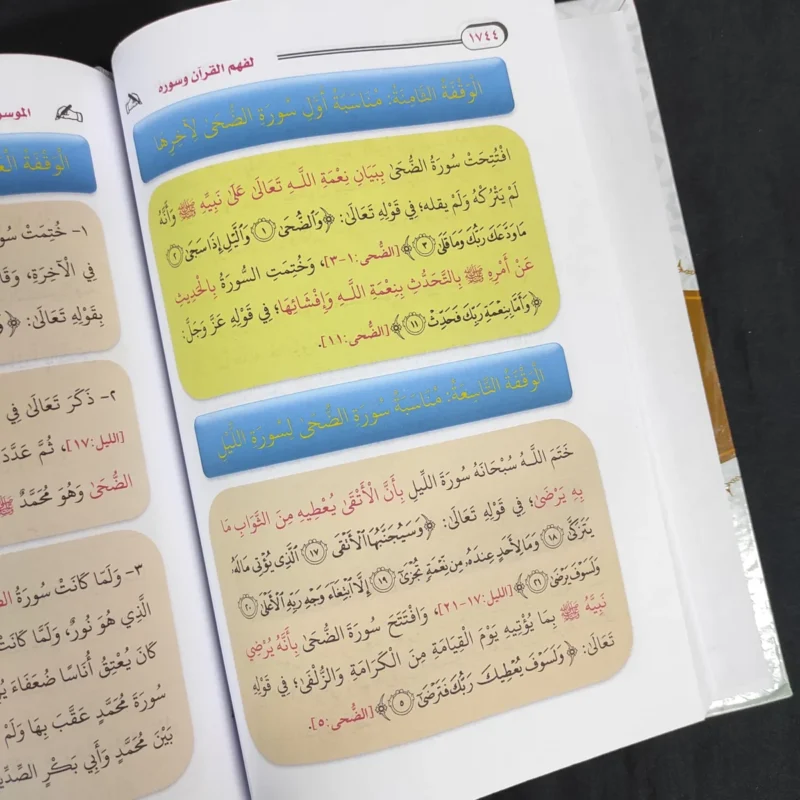 ١٧٤٤
لفهم القرآن وسوره
الْوَقْفَةُ الثَّامِنَةُ: مُنَاسَبَةُ أَوَّلِ سُورَةِ الضُّحَىٰ لِآخِرِهَا
افْتُتِحَتْ سُورَةُ الضُّحَىٰ بِبَيَانِ نِعْمَةِ اللَّهِ تَعَالَىٰ عَلَىٰ نَبِيِّهِ ﷺ وَأَنَّهُ
لَمْ يَتْرُكْهُ وَلَمْ يقله؛ فِي قَوْلِهِ تَعَالَىٰ: ﴿وَٱلضُّحَىٰ ١ وَٱلَّيْلِ إِذَا سَجَىٰ ٢
مَا وَدَّعَكَ رَبُّكَ وَمَا قَلَىٰ ٣﴾ [الضُّحى: ١-٣]، وَخُتِمَتِ السُّورَةُ بِالْحَدِيثِ
عَنْ أَمْرِهِ ﷺ بِالتَّحَدُّثِ بِنِعْمَةِ اللَّهِ وَإِفْشَائِهَا؛ فِي قَوْلِهِ عَزَّ وَجَلَّ:
﴿وَأَمَّا بِنِعْمَةِ رَبِّكَ فَحَدِّثْ ١١﴾ [الضُّحى: ١١].
الْوَقْفَةُ التَّاسِعَةُ: مُنَاسَبَةُ سُورَةِ الضُّحَىٰ لِسُورَةِ اللَّيْلِ
خَتَمَ اللَّهُ سُبْحَانَهُ سُورَةَ اللَّيْلِ بِأَنَّ الْأَتْقَىٰ يُعْطِيهِ مِنَ الثَّوَابِ مَا
بِهِ يَرْضَىٰ؛ فِي قَوْلِهِ تَعَالَىٰ: ﴿وَسَيُجَنَّبُهَا ٱلْأَتْقَى ١٧ ٱلَّذِى يُؤْتِى مَالَهُۥ
يَتَزَكَّىٰ ١٨ وَمَا لِأَحَدٍ عِندَهُۥ مِن نِّعْمَةٍ تُجْزَىٰٓ ١٩ إِلَّا ٱبْتِغَآءَ وَجْهِ رَبِّهِ ٱلْأَعْلَىٰ ٢٠
وَلَسَوْفَ يَرْضَىٰ ٢١﴾ [الليل: ١٧-٢١]، وَافْتَتَحَ سُورَةَ الضُّحَىٰ بِأَنَّهُ يُرْضِي
نَبِيَّهُ ﷺ بِمَا يُؤْتِيهِ يَوْمَ الْقِيَامَةِ مِنَ الْكَرَامَةِ وَالزُّلْفَىٰ؛ فِي قَوْلِهِ
تَعَالَىٰ: ﴿وَلَسَوْفَ يُعْطِيكَ رَبُّكَ فَتَرْضَىٰٓ ٥﴾ [الضُّحى: ٥].
الْوَقْفَةُ
١- خُتِمَتْ
فِي الْآخِرَةِ،
بِقَوْلِهِ تَعَالَىٰ: ﴿
٢- ذَكَرَ تَعَالَىٰ فِي
[الليل: ١٧]، ثُمَّ عَدَّدَ
الضُّحَىٰ وَهُوَ مُحَمَّدٌ ﷺ
٣- وَلَمَا كَانَتْ سُورَةُ
الَّذِي هُوَ نُورٌ، وَلَمَّا كَانَتْ
كَانَ يُعْتِقُ أُنَاسًا ضُعَفَاءَ
سُورَةَ مُحَمَّدٍ عَقَّبَ بِهَا وَلَمْ
بَيْنَ مُحَمَّدٍ وَأَبِي بَكْرٍ